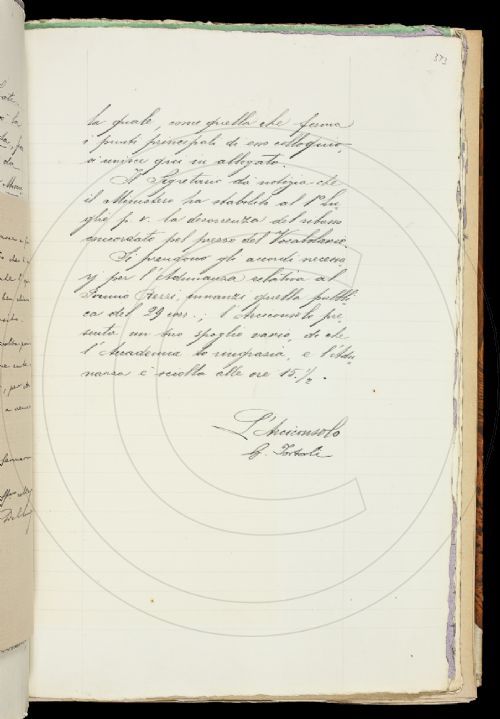 373
la quale, come quella che ferma
i punti principali di esso colloquio,
si unisce qui in allegato.
Il Segretario dà notizia che
il Ministero ha stabilita al 1° Lu
glio p. v. la decorrenza del ribasso
concordato pel prezzo del Vocabolario.
Si prendono gli accordi necessa
rj per l'Adunanza relativa al
Premio innanzi quella pubbli
ca del 29 corr.; l'Arciconsolo pre
senta un suo spoglio vario, di che
l'Accademia lo ringrazia, e l'Adu
nanza è sciolta alle ore 15 ½.
L'Arciconsolo
G. Tortoli